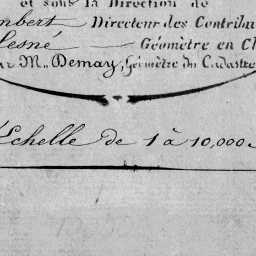 et sous la Direction de
mbert Directeur des Contribu
Lesné — Géomètre en Ch
ar M. Demay, Géomètre du Cadastre
Echelle de 1 à 10,000